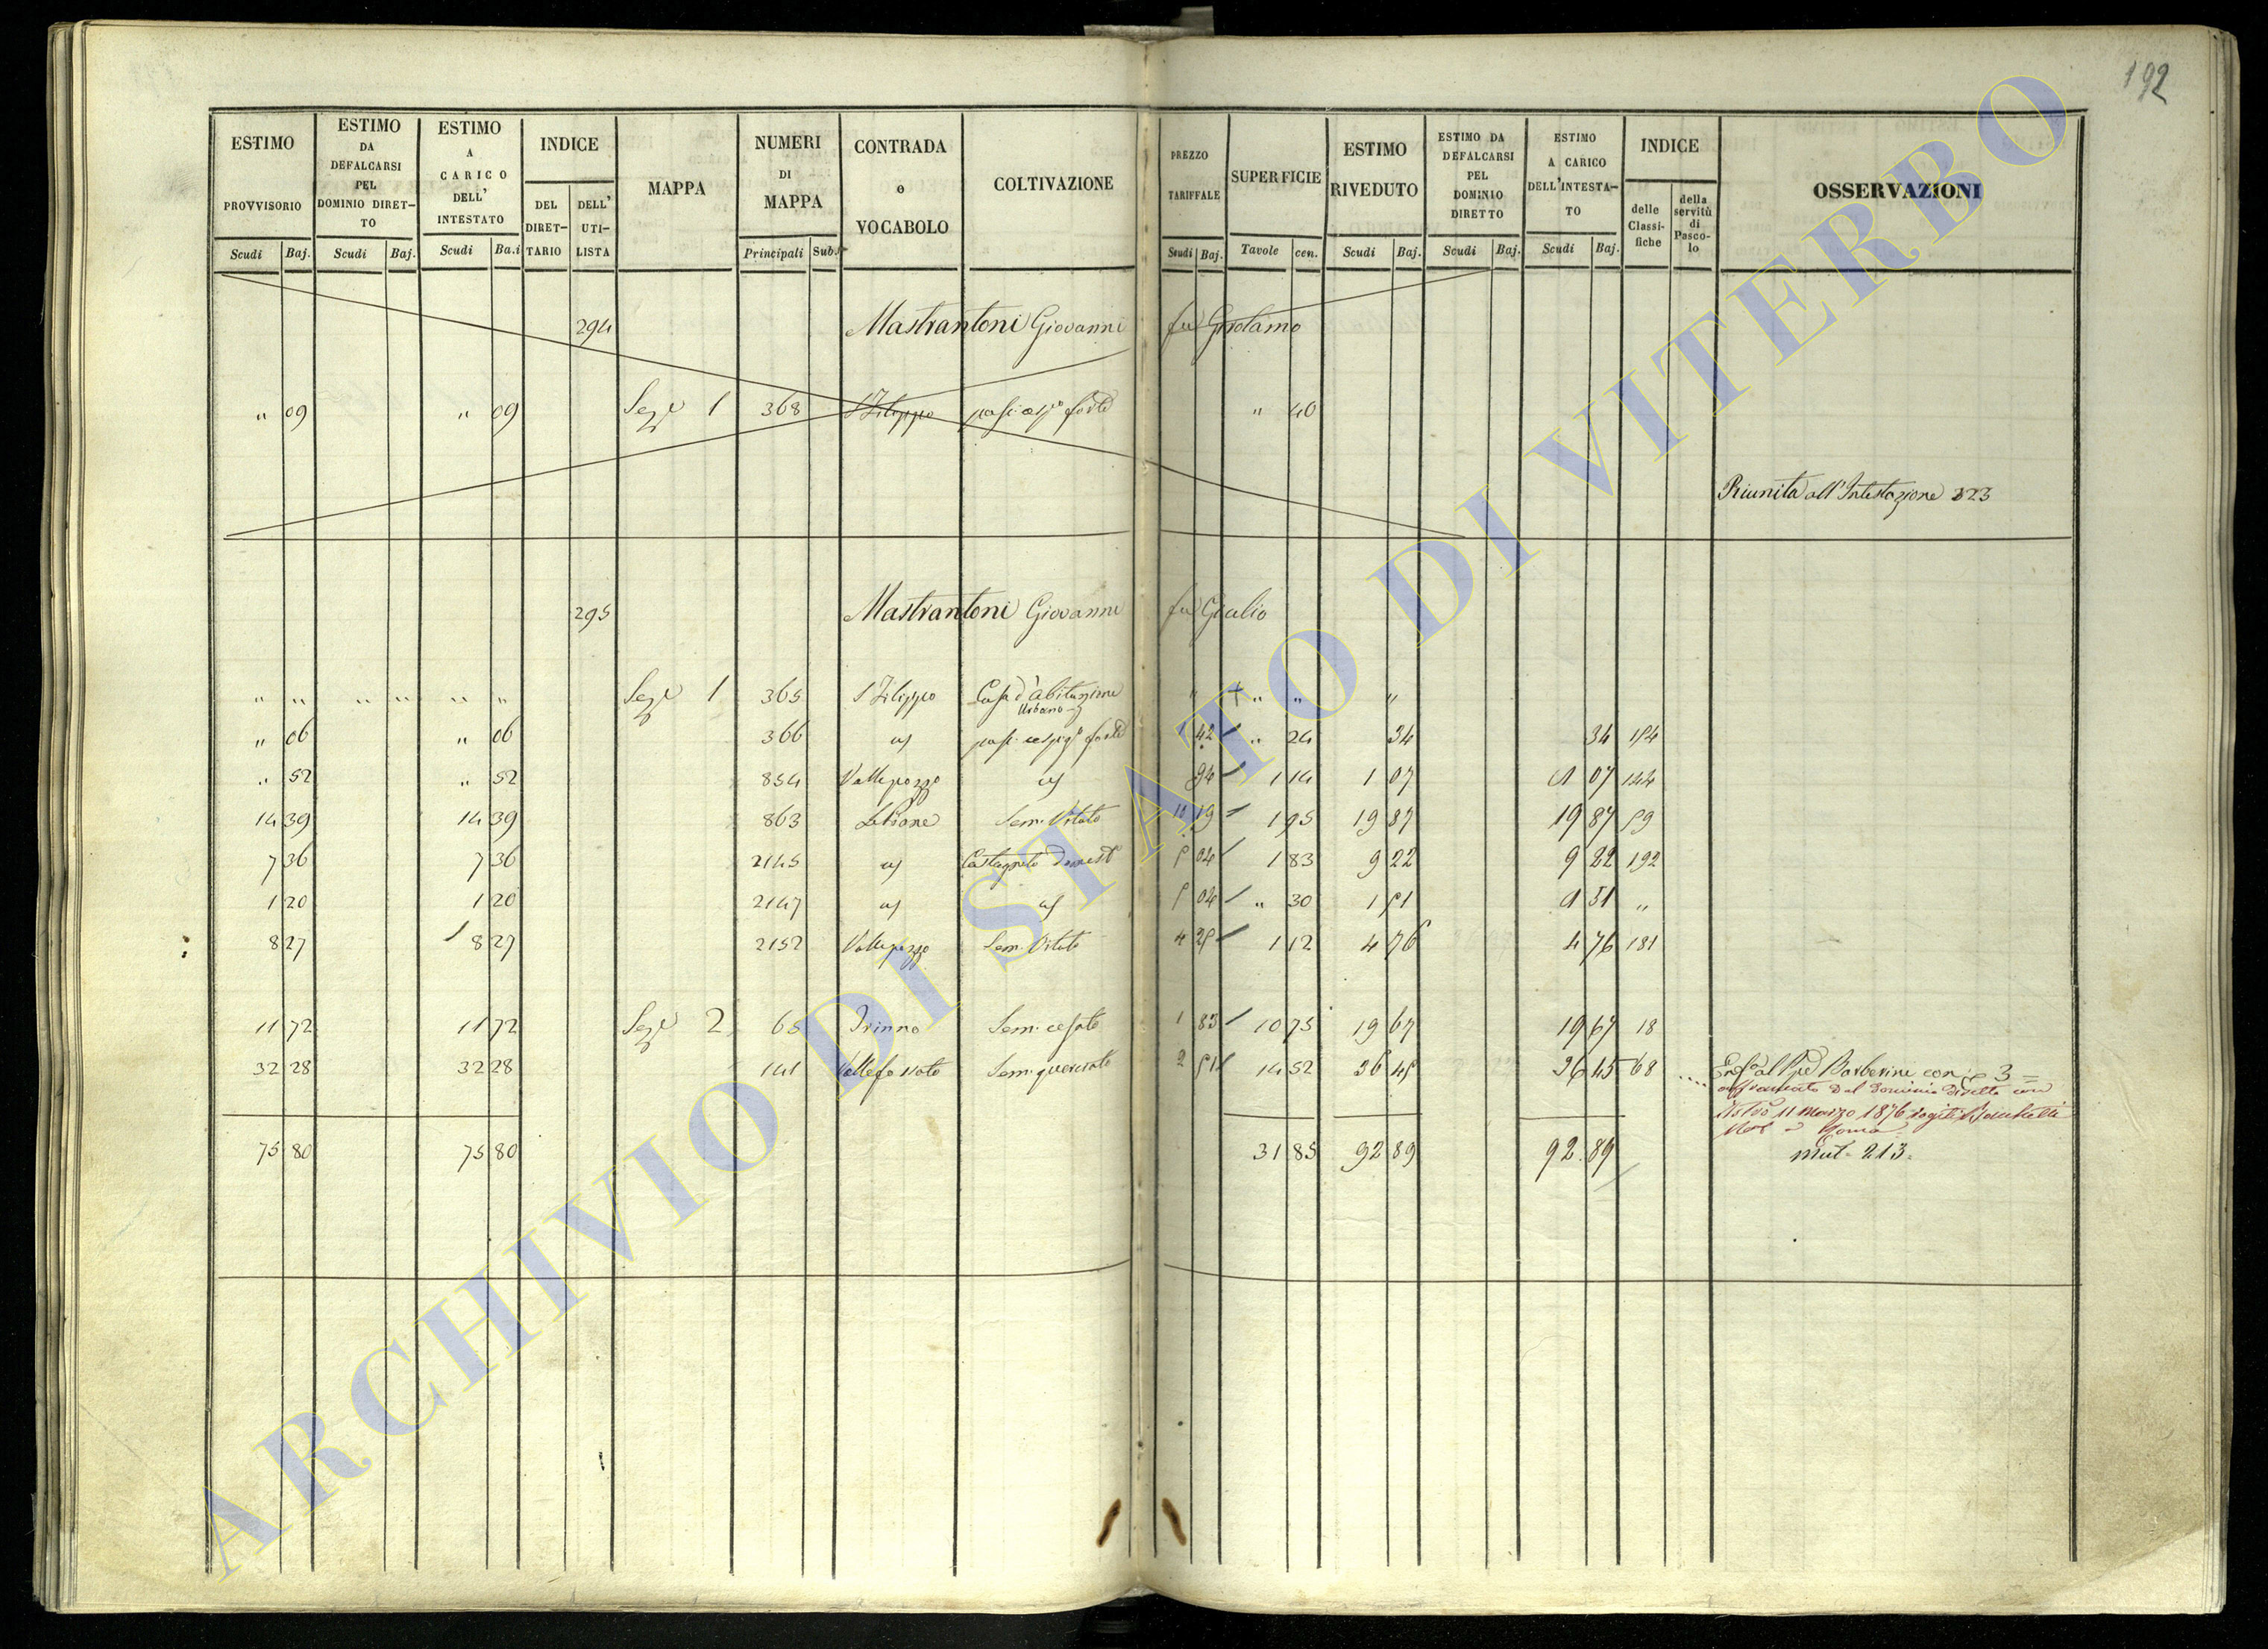 192
ESTIMO PROVVISORIO Scudi Baj.
ESTIMO DA DEFALCARSI PEL DOMINIO DIRET-TO Scudi Baj.
ESTIMO A CARICO DELL' INTESTATO Scudi Ba.i
INDICE DEL DIRET-TARIO DELL' UTI-LISTA
MAPPA
NUMERI DI MAPPA Principali Sub.
CONTRADA o VOCABOLO
COLTIVAZIONE
PREZZO TARIFFALE Scudi Baj.
SUPERFICIE Tavole cen.
ESTIMO RIVEDUTO Scudi Baj.
ESTIMO DA DEFALCARSI PEL DOMINIO DIRETTO Scudi Baj.
ESTIMO A CARICO DELL'INTESTA-TO Scudi Baj.
INDICE delle Classi-fiche della servitù di Pasco-lo
OSSERVAZIONI
294 Mastrantoni Giovanni fu Girolamo
" 09 " 09 Sez.e 1 368 S Filippo " 40
Riunita all'Intestazione 323
295 Mastrantoni Giovanni fu Giulio
" " " " " " Sez.e 1 365 S Filippo Casa d'abitazione " " " "
Urbano
" 06 " 06 366 1 42 " 24 34 34 154
" 52 " 52 854 Vallepozzo 94 1 14 1 07 1 07 144
14 39 14 39 863 Sem. Vitato 10 19 1 95 19 87 19 87 59
7 36 7 36 2145 Castagneto Domest 5 04 1 83 9 22 9 22 192
1 20 1 20 2147 5 04 " 30 1 51 1 51 "
8 27 8 27 2152 Vallepozzo Sem. Vitato 4 25 1 12 4 76 4 76 181
11 72 11 72 Sez.e 2 65 Sem. cesato 1 83 10 75 19 67 19 67 18
32 28 32 28 141 Sem. quercato 2 51 14 52 36 45 36 45 68 Barberini con 3
affrancato dal dominio diretto con
11 marzo 1876
Roma
75 80 75 80 31 85 92 89 92.89 mut. 213.
ARCHIVIO DI STATO DI VITERBO